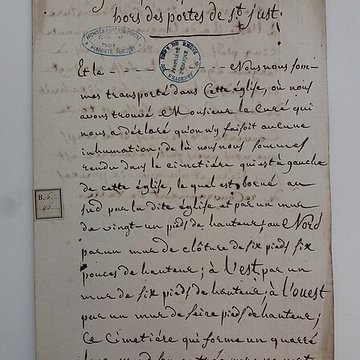 hors des portes de St just.
Et le — — — — Nous nous som-
mes transporté dans Cette église, où nous
avons trouvé Monsieur le Curé qui
nous a déclaré qu'on n'y faisoit aucune
inhumation; de là nous nous sommes
rendu dans le cimetiére qui est à gauche
de cette église, le quel est borné au
sud par la dite église et par un mur
de vingt-un pieds de hauteur; au Nord
par un mur de clôture de six pieds six
pouces de hauteur; à l'est par un
mur de six pieds de hauteur, à l'ouest
par un mur de seize pieds de hauteur;
Ce Cimetiére qui forme un quarré